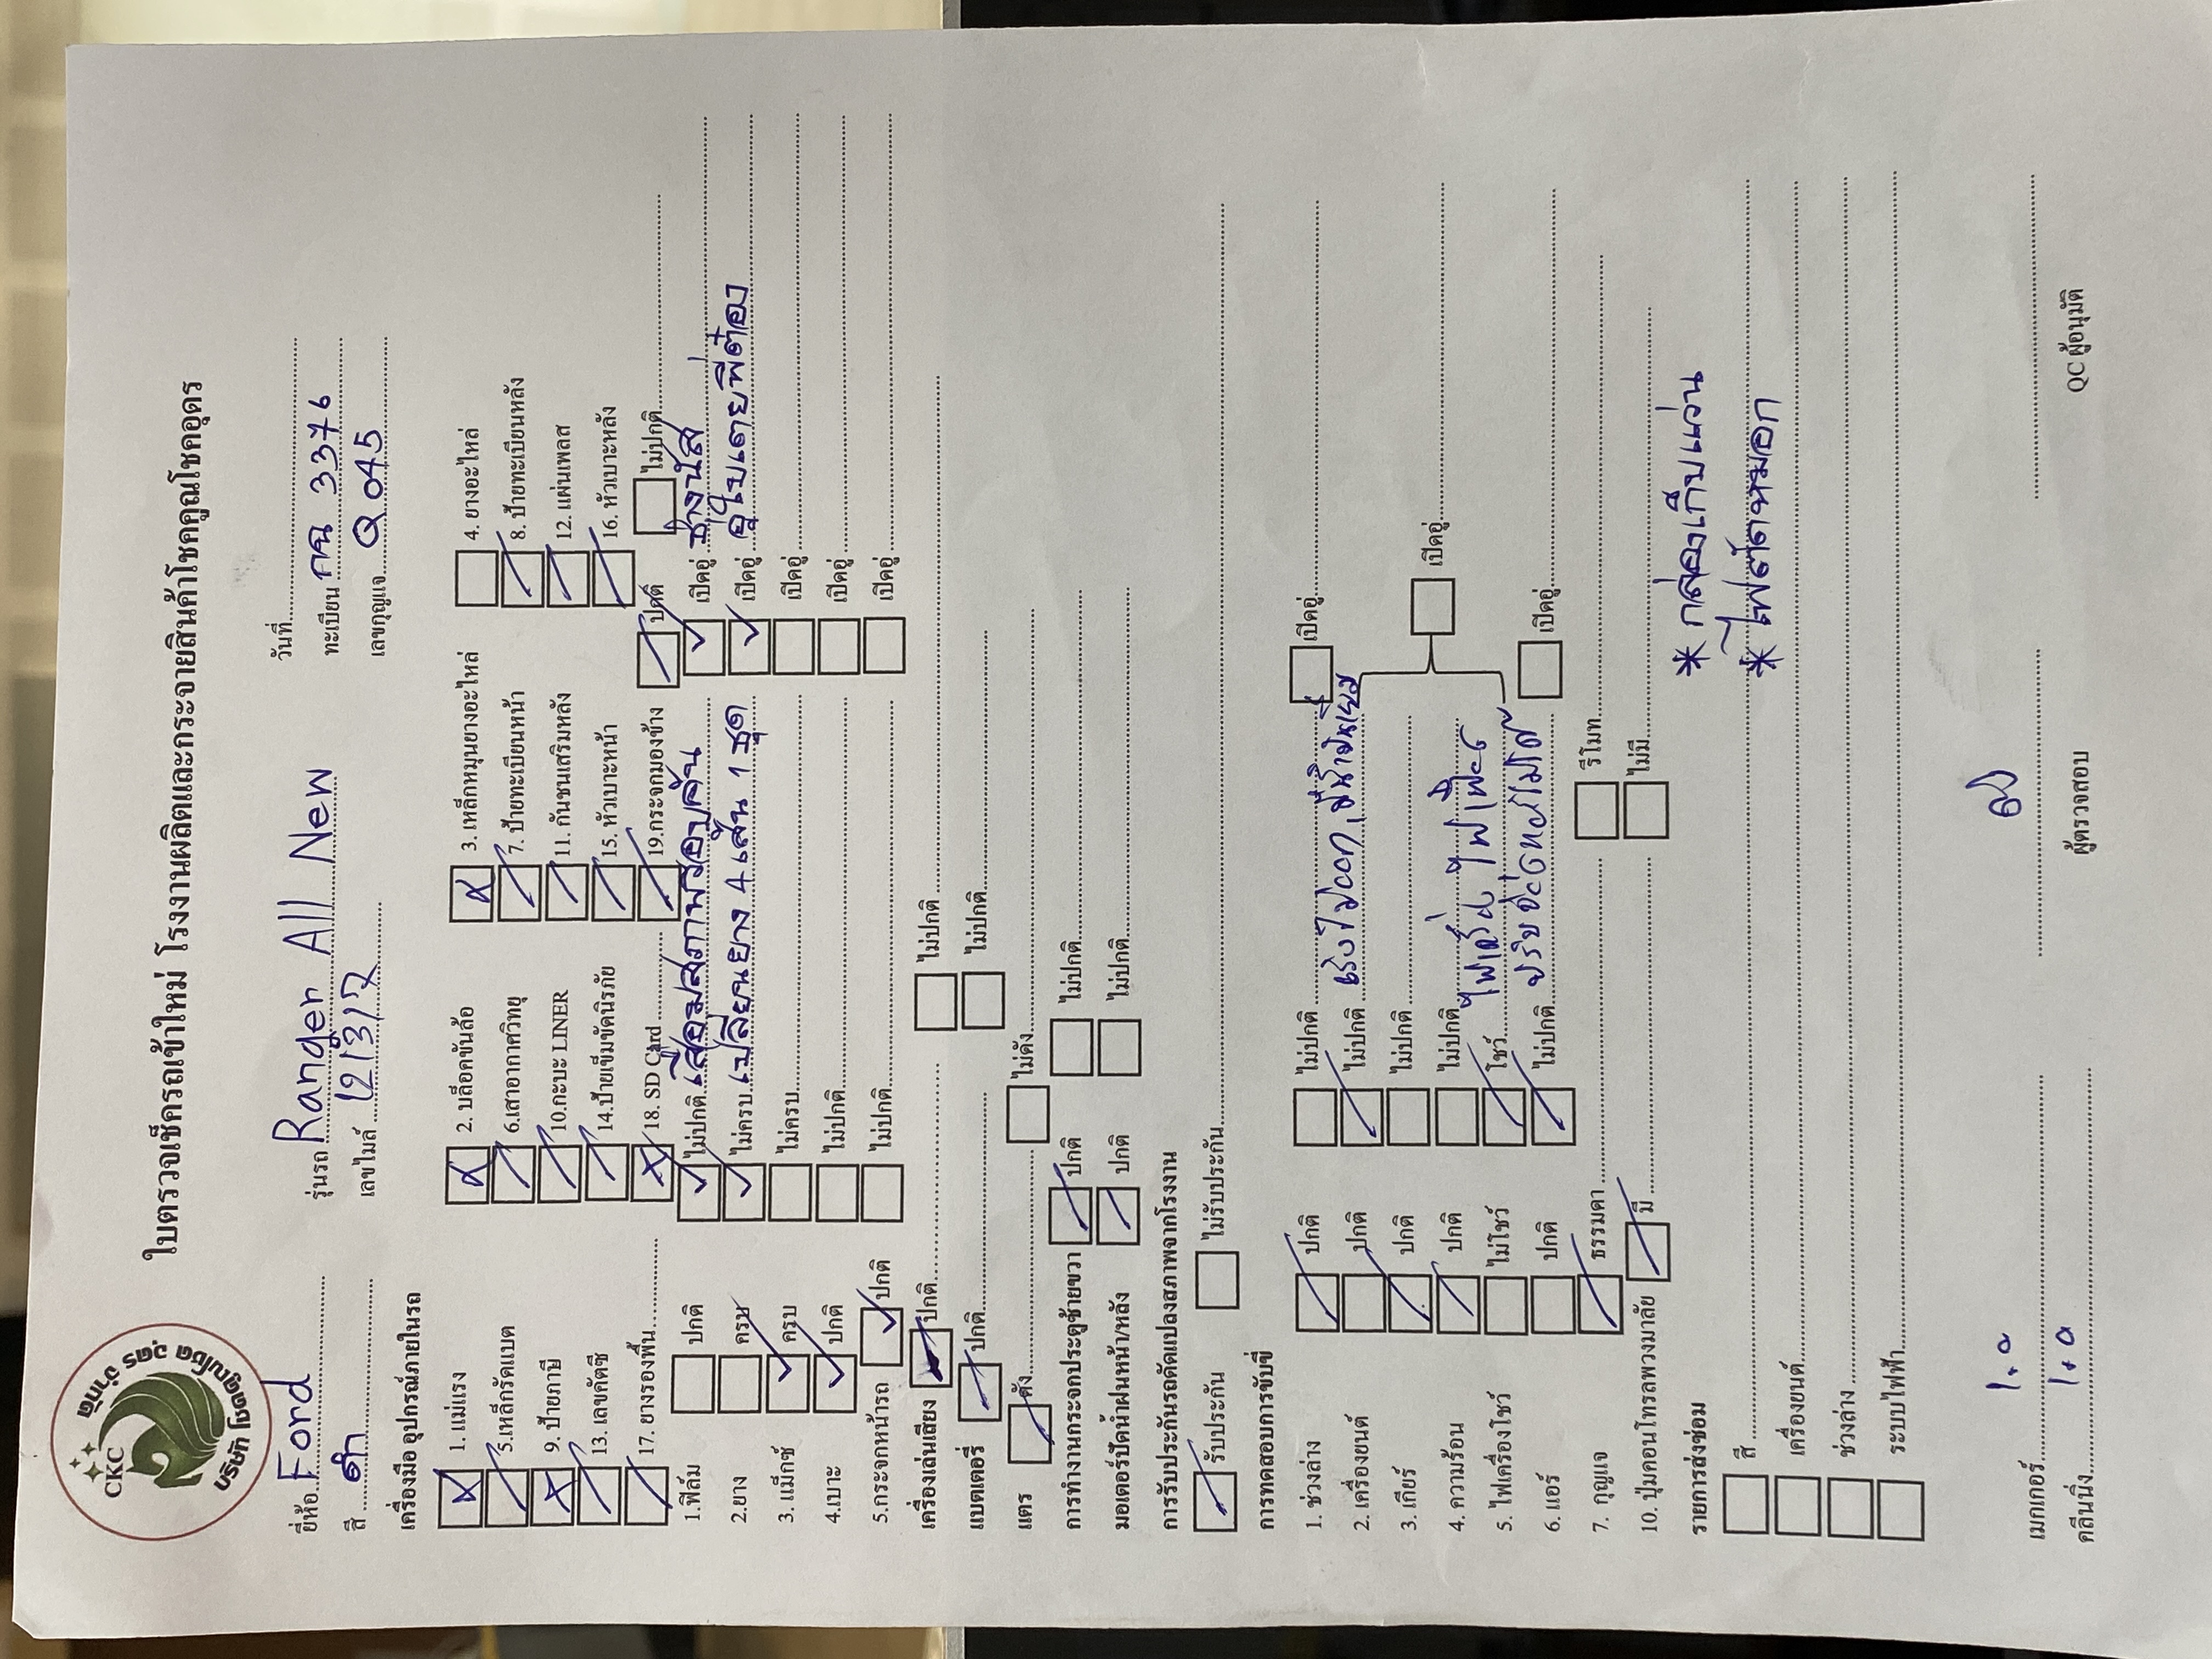 CKC
บริษัท คูณโชค อุดร จำกัด
ใบตรวจเช็ครถเข้าใหม่ โรงงานผลิตและกระจายสินค้าโชคคูณโชคอุดร
วันที่
ยี่ห้อ Ford รุ่นรถ Ranger All New ทะเบียน 3376
สี ดำ เลขไมล์ เลขกุญแจ Q 045
เครื่องมือ อุปกรณ์ภายในรถ
1. แม่แรง 2. บล็อคขันล้อ 3. เหล็กหมุนยางอะไหล่ 4. ยางอะไหล่
5.เหล็กรัดแบต 6.เสาอากาศวิทยุ 7. ป้ายทะเบียนหน้า 8. ป้ายทะเบียนหลัง
9. ป้ายภาษี 10.กะบะ LINER 11. กันชนเสริมหลัง 12. แผ่นเพลส
13. เลขคัตซี 14.ป้ายเข็มขัดนิรภัย 15. หัวเบาะหน้า 16. หัวเบาะหลัง
17. ยางรองพื้น 18. SD Card 19.กระจกมองข้าง ปกติ ไม่ปกติ
1.ฟิล์ม ปกติ ไม่ปกติ เสื่อมสภาพรอบคัน เปิดอยู่ ช่างนัส
2.ยาง ครบ ไม่ครบ เปลี่ยนยาง 4 เส้น 1 ชุด เปิดอยู่
3. แม็กซ์ ครบ ไม่ครบ เปิดอยู่
4.เบาะ ปกติ ไม่ปกติ เปิดอยู่
5.กระจกหน้ารถ ปกติ ไม่ปกติ เปิดอยู่
เครื่องเล่นเสียง ปกติ ไม่ปกติ
แบตเตอรี่ ปกติ ไม่ปกติ
แตร ดัง ไม่ดัง
การทำงานกระจกประตูซ้ายขวา ปกติ ไม่ปกติ
มอเตอร์ปัดน้ำฝนหน้า/หลัง ปกติ ไม่ปกติ
การรับประกันรถดัดแปลงสภาพจากโรงงาน
รับประกัน ไม่รับประกัน
การทดสอบการขับขี่
1. ช่วงล่าง ปกติ ไม่ปกติ เปิดอยู่
2. เครื่องยนต์ ปกติ ไม่ปกติ
3. เกียร์ ปกติ ไม่ปกติ
4. ความร้อน ปกติ ไม่ปกติ เปิดอยู่
5. ไฟเครื่องโชว์ ไม่โชว์ โชว์
6. แอร์ ปกติ ไม่ปกติ เปิดอยู่
7. กุญแจ ธรรมดา รีโมท
10. ปุ่มคอนโทรลพวงมาลัย มี ไม่มี
รายการส่งซ่อม * กล่องเก็บแว่น
สี * ไฟตัดหมอก
เครื่องยนต์
ช่วงล่าง
ระบบไฟฟ้า
เมกเกอร์
คลีนนิ่ง ผู้ตรวจสอบ QC ผู้อนุมัติ